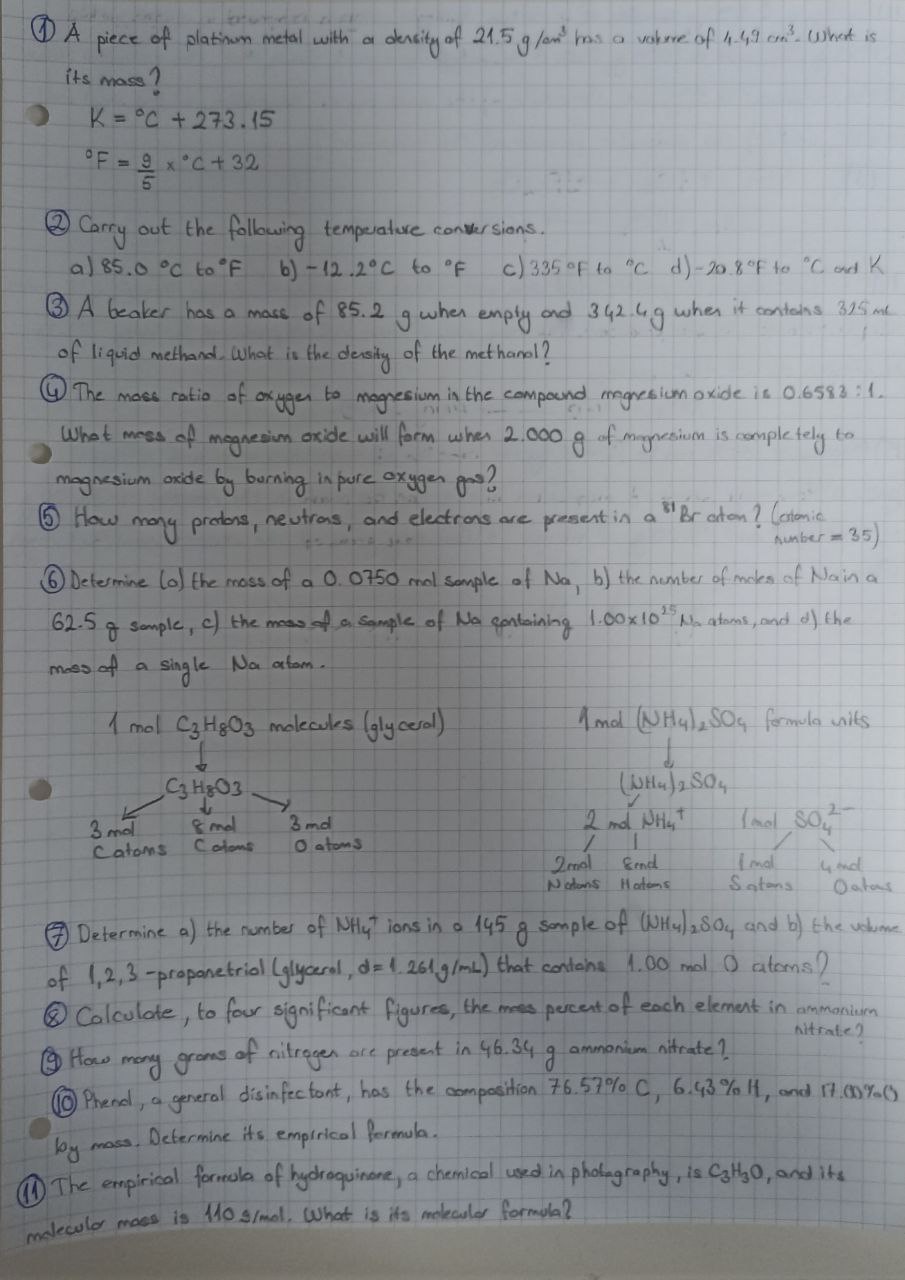 ① A piece of platinum metal with a density of 21.5 g/cm³ has a volume of 4.49 cm³. What is
its mass?
K = °C + 273.15
°F = 9/5 × °C + 32
② Carry out the following temperature conversions.
a) 85.0 °C to °F b) -12.2°C to °F c) 335 °F to °C d) -20.8°F to °C and K
③ A beaker has a mass of 85.2 g when empty and 342.4g when it contains 325 mL
of liquid methanol. What is the density of the methanol?
④ The mass ratio of oxygen to magnesium in the compound magnesium oxide is 0.6583:1.
What mass of magnesium oxide will form when 2.000 g of magnesium is completely to
magnesium oxide by burning in pure oxygen gas?
⑤ How many protons, neutrons, and electrons are present in a ⁸¹Br atom? (atomic
number = 35)
⑥ Determine (a) the mass of a 0.0750 mol sample of Na, b) the number of moles of Na in a
62.5 g sample, c) the mass of a sample of Na containing 1.00×10²⁵ Na atoms, and d) the
mass of a single Na atom.
1 mol C3H8O3 molecules (glycerol) 1 mol (NH4)2SO4 formula units
C3H8O3 (NH4)2SO4
3 mol 8 mol 3 mol 2 mol NH4⁺ 1 mol SO4²⁻
C atoms C atoms O atoms 2 mol 8 mol 1 mol 4 mol
N atoms H atoms S atoms O atoms
⑦ Determine a) the number of NH4⁺ ions in a 145 g sample of (NH4)2SO4 and b) the volume
of 1,2,3-propanetriol (glycerol, d=1.261g/mL) that contains 1.00 mol O atoms?
⑧ Calculate, to four significant figures, the mass percent of each element in ammonium
nitrate?
⑨ How many grams of nitrogen are present in 46.34 g ammonium nitrate?
⑩ Phenol, a general disinfectant, has the composition 76.57% C, 6.43% H, and 17.00% O
by mass. Determine its empirical formula.
⑪ The empirical formula of hydroquinone, a chemical used in photography, is C3H3O, and its
molecular mass is 110 g/mol. What is its molecular formula?